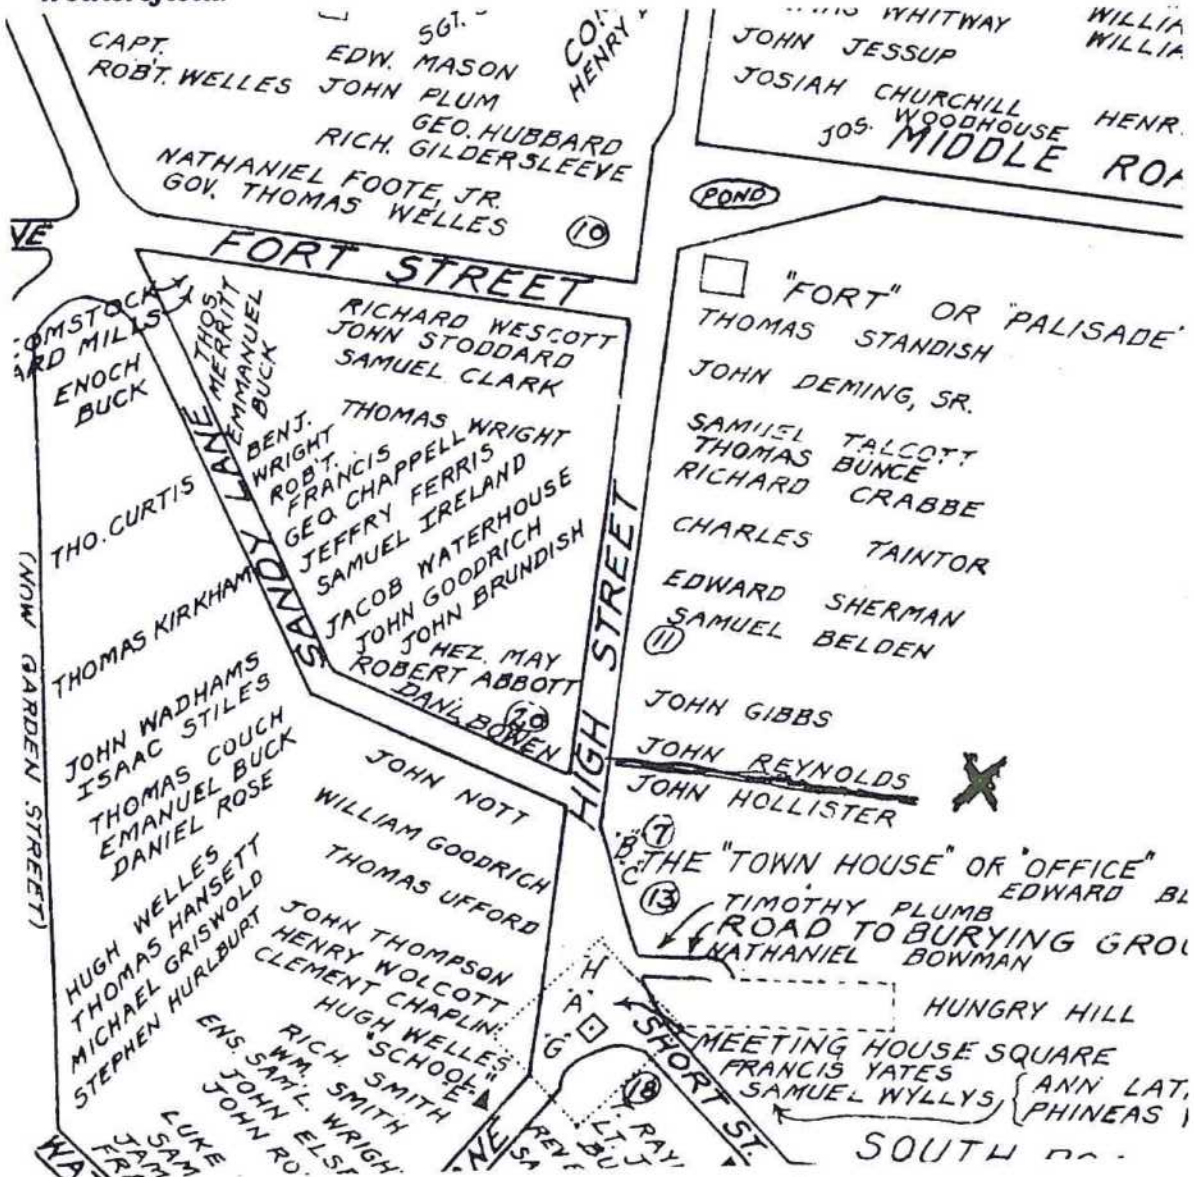 CAPT.
ROB'T. WELLES
SGT.
EDW. MASON
JOHN PLUM
GEO. HUBBARD
RICH. GILDERSLEEVE
NATHANIEL FOOTE, JR.
GOV. THOMAS WELLES
10
HENRY
WHITWAY
JOHN JESSUP
JOSIAH CHURCHILL
JOS. WOODHOUSE
MIDDLE
POND
FORT STREET
ENOCH
BUCK
THO. CURTIS
THOMAS KIRKHAM
JOHN WADHAMS
ISAAC STILES
THOMAS COUCH
EMANUEL BUCK
DANIEL ROSE
HUGH WELLES
THOMAS HANSETT
MICHAEL GRISWOLD
STEPHEN HURLBURT
(NOW GARDEN STREET)
SANDY LANE
THOS.
MERRITT
EMMANUEL
BUCK
RICHARD WESCOTT
JOHN STODDARD
SAMUEL CLARK
THOMAS WRIGHT
BENJ.
WRIGHT
ROB'T.
FRANCIS
GEO. CHAPPELL
JEFFRY FERRIS
SAMUEL IRELAND
JACOB WATERHOUSE
JOHN GOODRICH
JOHN BRUNDISH
HEZ. MAY
ROBERT ABBOTT
DAN'L BOWEN
20
HIGH STREET
"FORT" OR "PALISADE"
THOMAS STANDISH
JOHN DEMING, SR.
SAMUEL TALCOTT
THOMAS BUNCE
RICHARD CRABBE
CHARLES TAINTOR
EDWARD SHERMAN
SAMUEL BELDEN
11
JOHN GIBBS
JOHN REYNOLDS X
JOHN HOLLISTER
7
"B"
"C"
THE "TOWN HOUSE" OR "OFFICE"
EDWARD
13
TIMOTHY PLUMB
ROAD TO BURYING
NATHANIEL BOWMAN
HUNGRY HILL
MEETING HOUSE SQUARE
FRANCIS YATES
SAMUEL WYLLYS
ANN
PHINEAS
SOUTH
SHORT ST.
H
"A"
G
18
JOHN NOTT
WILLIAM GOODRICH
THOMAS UFFORD
JOHN THOMPSON
HENRY WOLCOTT
CLEMENT CHAPLIN
HUGH WELLES
"SCHOOL"
RICH. SMITH
WM. SMITH
ENS. SAM'L.
JOHN
JOHN
LUKE